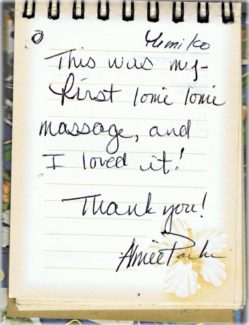 Yumiko
This was my
first lomi lomi
massage, and
I loved it!
Thank you!
Aimee